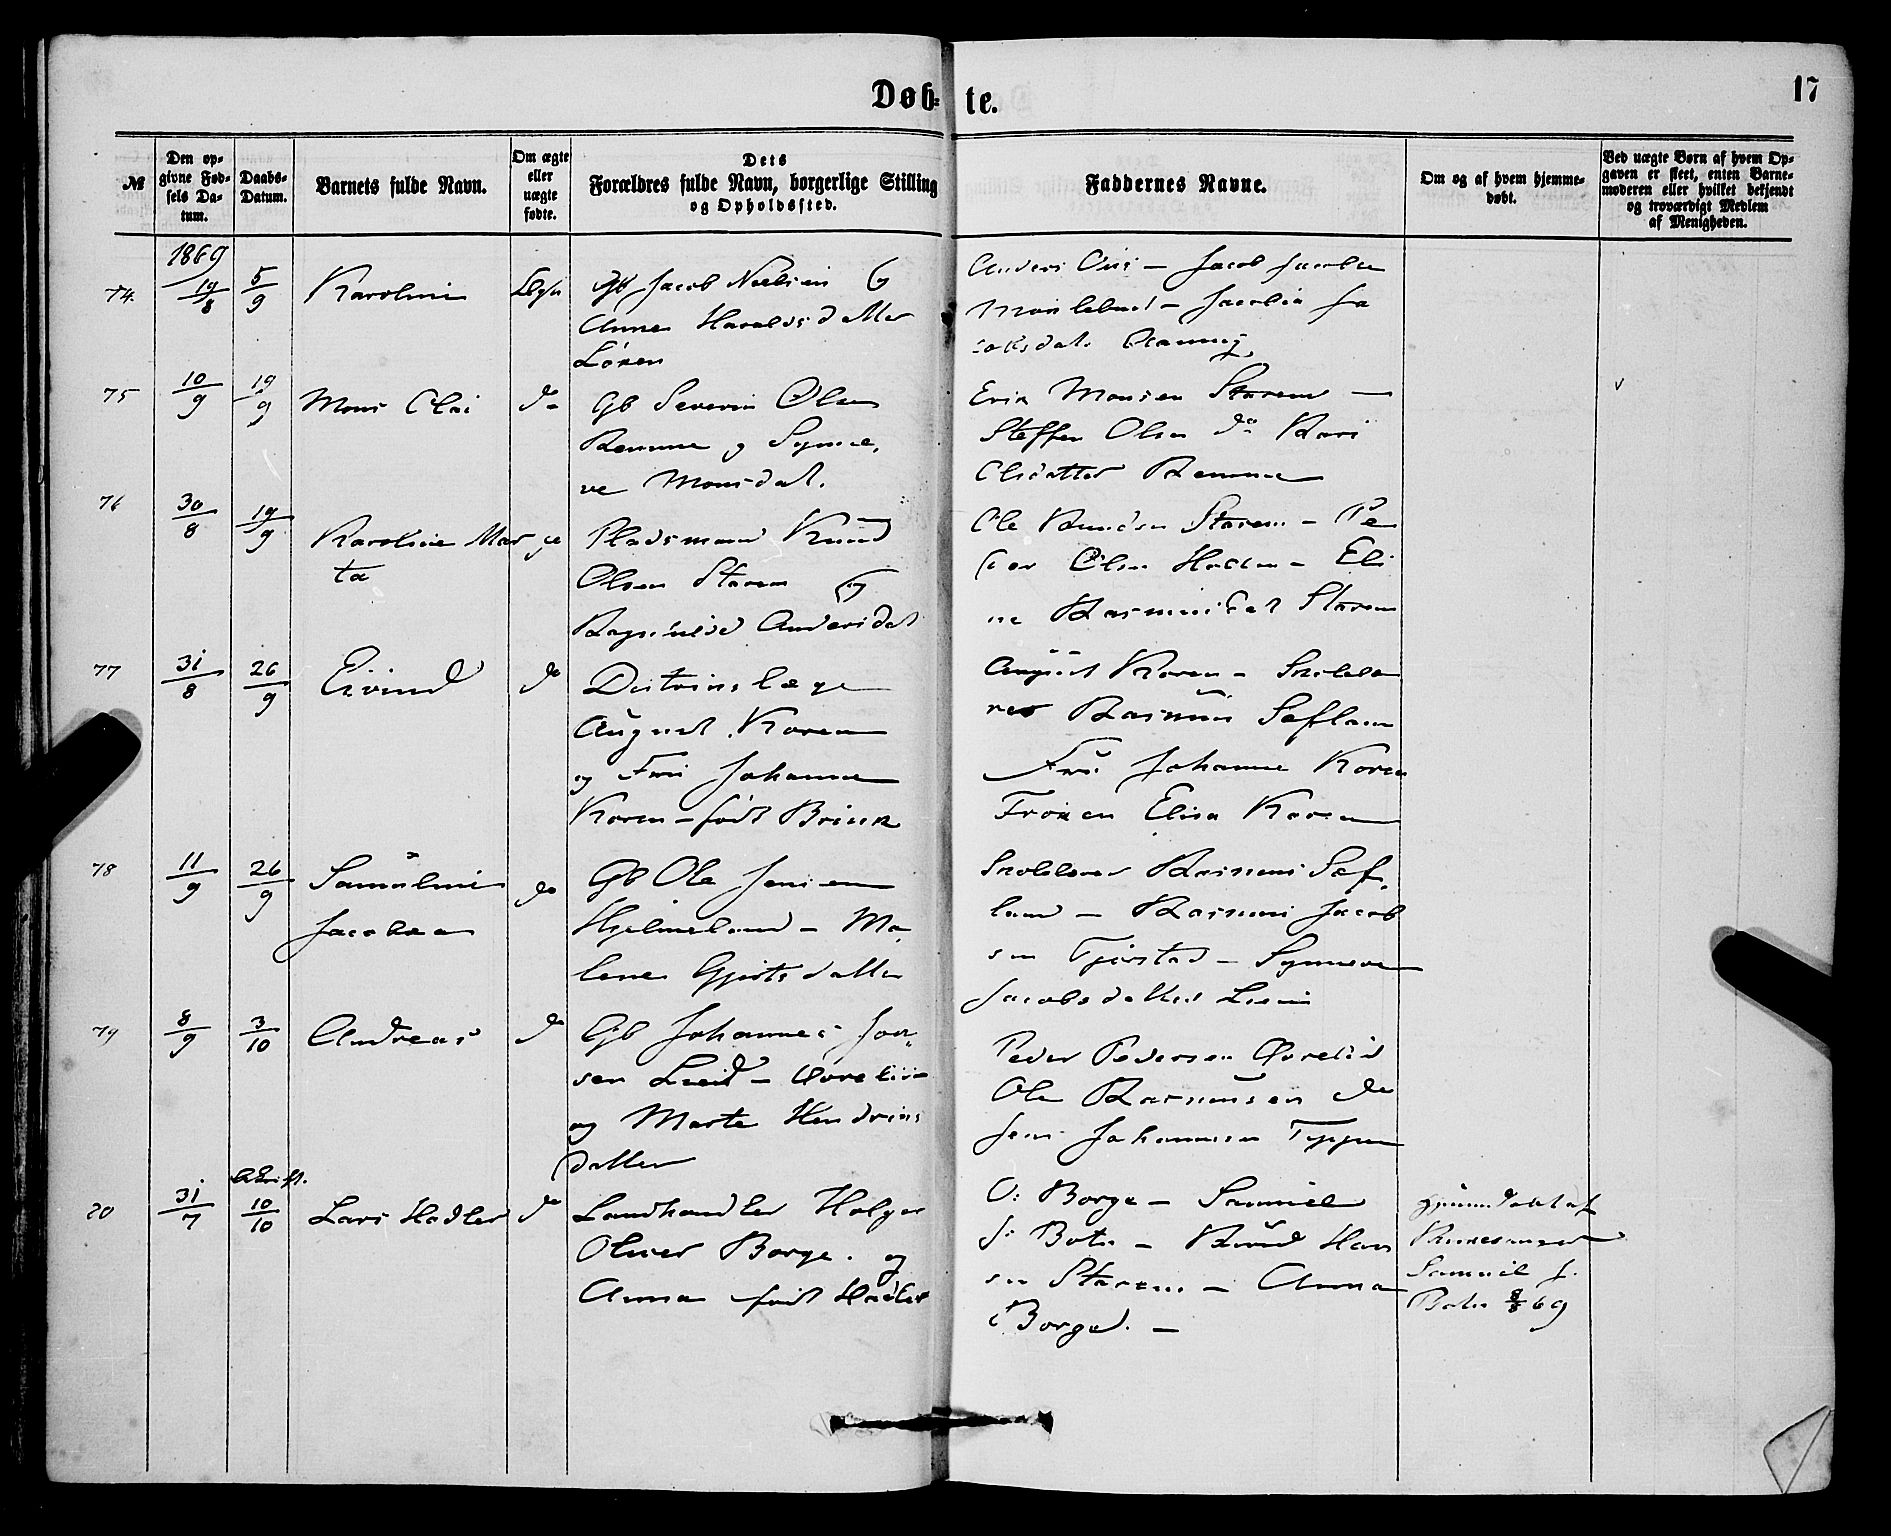 Døb=
te.
17
№
Den op-
givne Fød-
sels Da-
tum.
Daabs-
Datum.
Barnets fulde Navn.
Om ægte
eller
uægte
fødte.
Dets
Forældres fulde Navn, borgerlige Stilling
og Opholdssted.
Faddernes Navne.
Om og af hvem hjemme-
døbt.
Ved uægte Børn af hvem Op-
gaven er skeet, enten Barne-
moderen eller hvilket bekjendt
og troværdigt Medlem
af Menigheden.
1869
74. 19/8 5/9 Karoline
Gb Jacob Nielsen og
Anne Haraldsdatter
Loken
Anders - Jacob Jacobsen
- Jacobia Ja
cobsdat.
75 10/9 19/9 Mons Olai do
Gb Severin Olsen
Remme og Synne,
ve Monsdat.
Erik Monsen Starem -
Steffen Olsen do Kari
Olsdatter Remme
76 30/8 19/9 Karoline Mar
ta
Pladsmand Knud
Olsen Starem og
Ragnhild Andersdat
Ole Knudsen Starem - Pe
der Olsen - Eli
ne Rasmusdat Starem
77 31/8 26/9 Eivind do
Distriktslæge
August Koren
og Fru Johanne
Koren - født Brink
August Koren - Skolelæ
rer Rasmus Sefland
Fru Johanne Koren
Frøken Elisa Koren
78 11/9 26/9 Samuline
Jacobea do
Gb Ole Jensen
Hjelmeland - Ma,
lene Gjertsdatter
Skolelærer Rasmus Sef,
land - Rasmus Jacob
sen Fjørstad - Synneve
Jacobsdatter
79 8/9 3/10 Andreas do
Gb Johannes
sen
og Marte Hendriks
datter
Peder Pedersen Øvrelid
Ole Rasmussen do
Jens Johannesen
31/7 10/10 Lars Hadler do
Landhandler Holger
Oliver Borge. og
Anna født Hadler
O: Borge - Samuel
J. Botn - Knud Han
sen Starem - Anna
Borge. -
hjemmedøbt af
Samuel J.
Botn 69